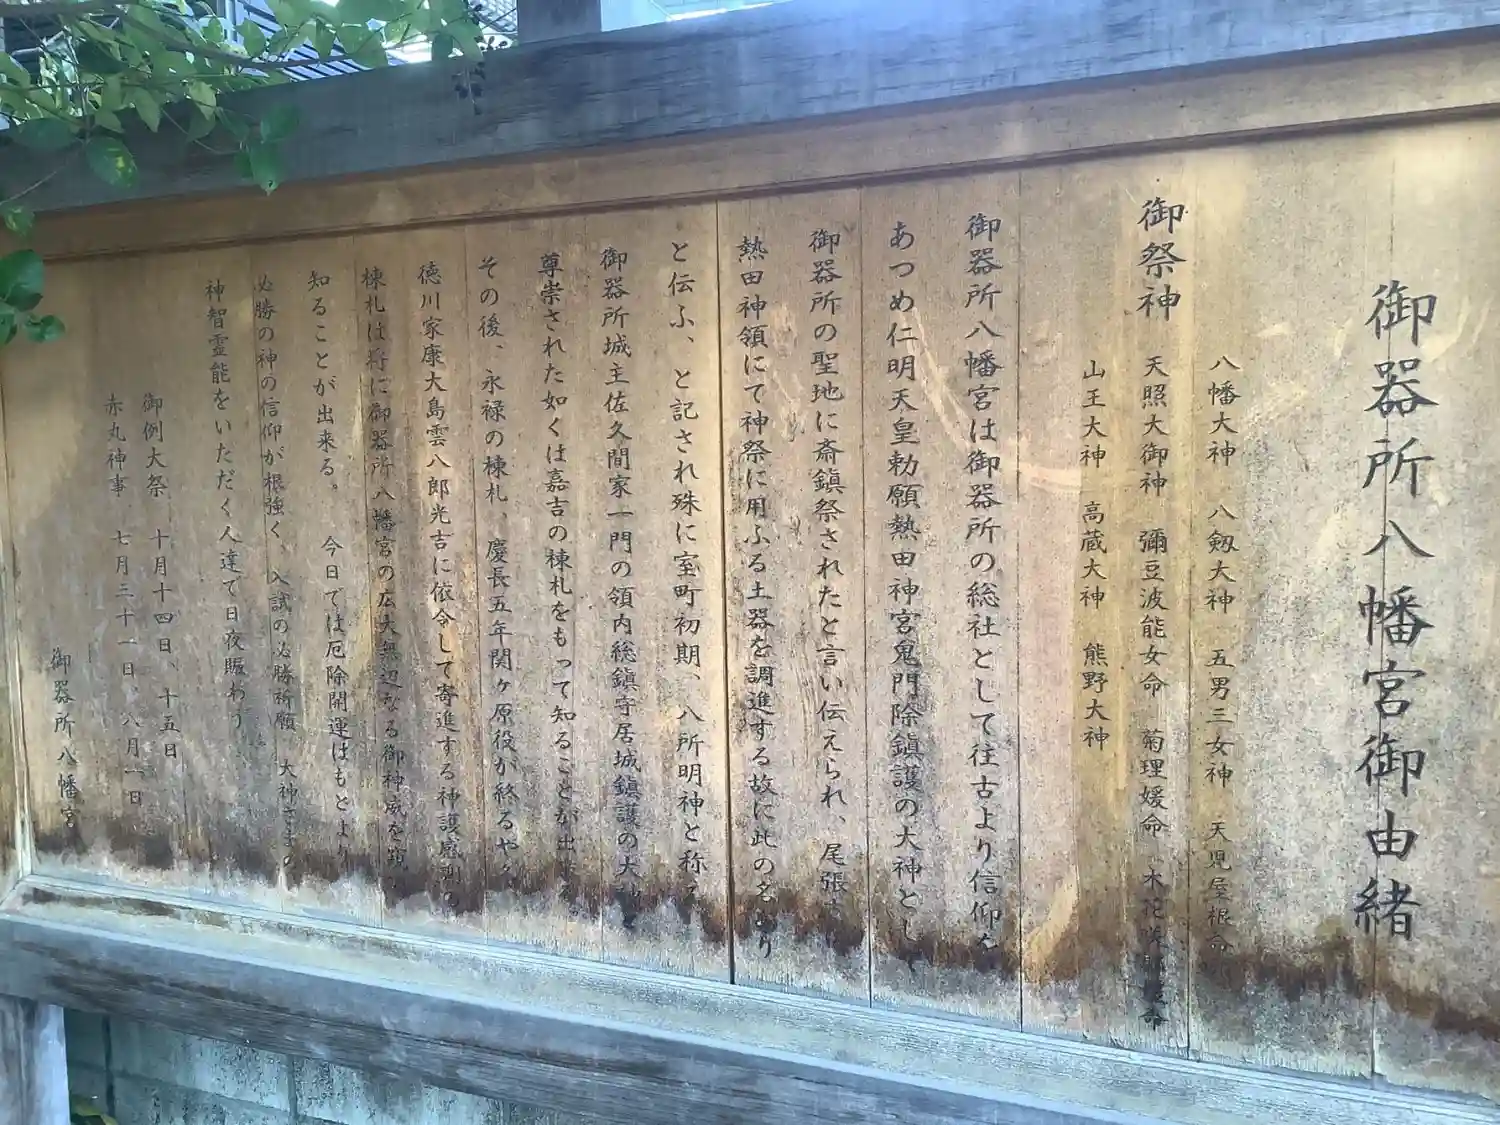 御器所八幡宮御由緒
八幡大神　八剱大神　五男三女神　天児屋根命
御祭神　天照大御神　彌豆波能女命　菊理媛命　木花咲
山王大神　高蔵大神　熊野大神
御器所八幡宮は御器所の総社として往古より信仰を
あつめ仁明天皇勅願熱田神宮鬼門除鎮護の大神とし
御器所の聖地に斎鎮祭されたと言い伝えられ、尾張
熱田神領にて神祭に用ふる土器を調進する故に此の名あり
と伝ふ、と記され殊に室町初期、八所明神と称
御器所城主佐久間家一門の領内総鎮守居城鎮護の大
尊崇された如くは嘉吉の棟札をもって知ることが出来る
その後、永禄の棟札、慶長五年関ヶ原役が終るや
徳川家康大島雲八郎光吉に依令して寄進する神護感
棟札は将に御器所八幡宮の広大無辺なる御神威を窺
知ることが出来る。　今日では厄除開運はもとより
必勝の神の信仰が根強く、入試の必勝祈願　大神さまの
神智霊能をいただく人達で日夜賑わう
御例大祭　十月十四日、十五日
赤丸神事　七月三十一日、八月一日
御器所八幡宮